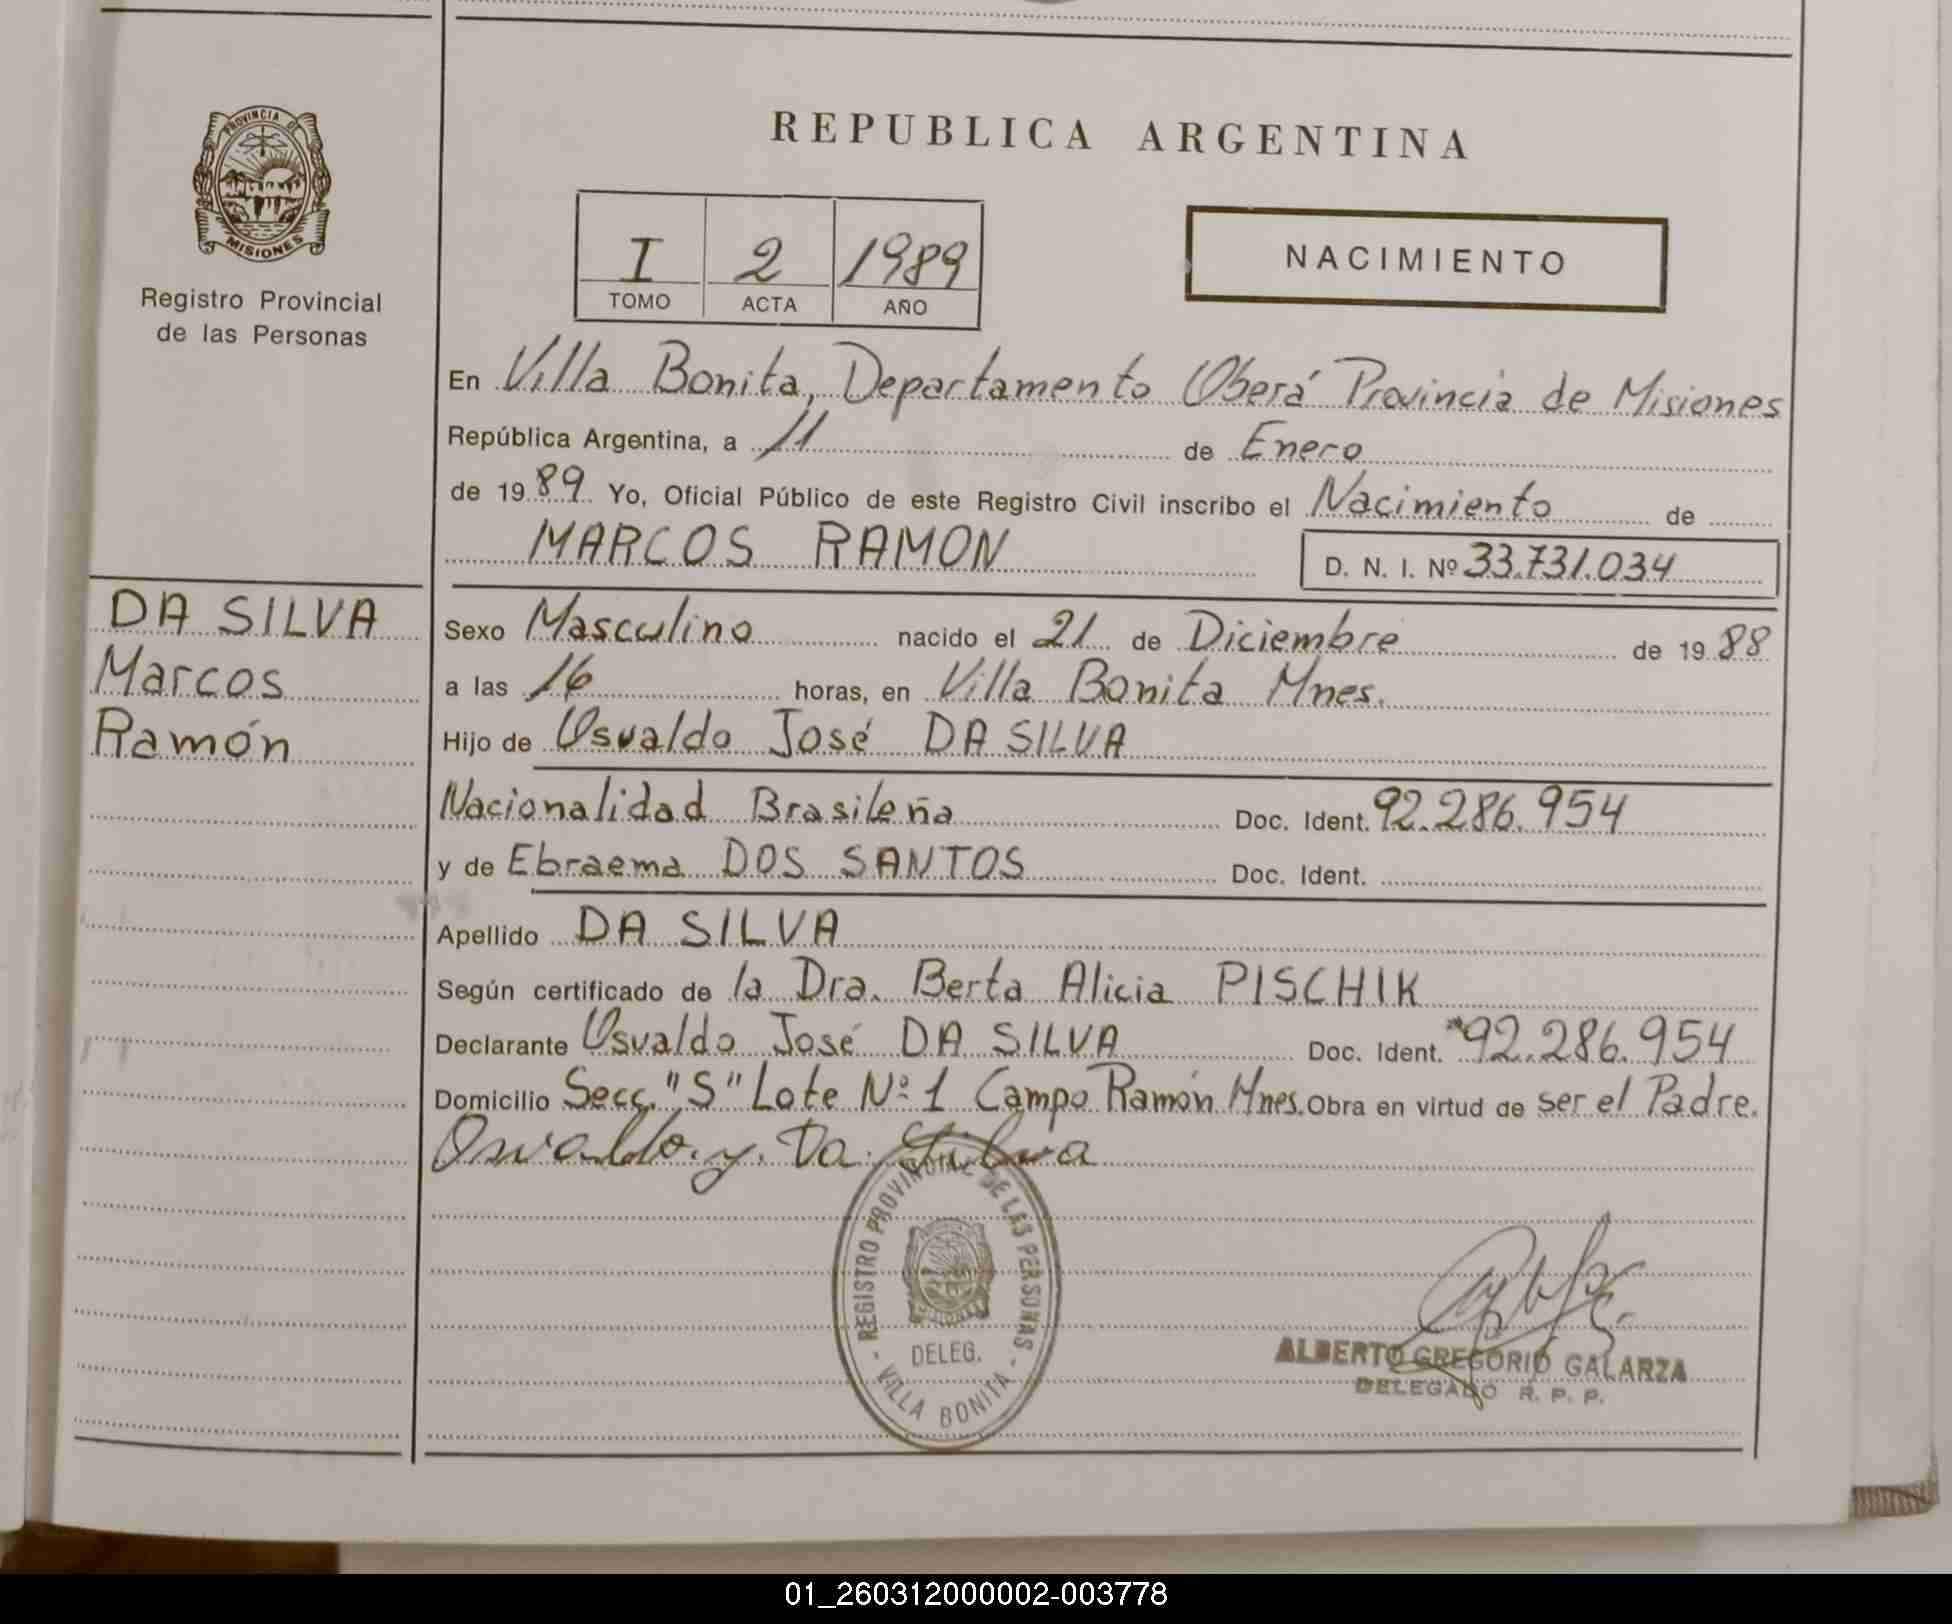 REPUBLICA ARGENTINA
PROVINCIA DE
MISIONES
Registro Provincial
de las Personas
I 2 1989
TOMO ACTA AÑO
NACIMIENTO
En Villa Bonita, Departamento Oberá Provincia de Misiones
República Argentina, a 11 de Enero
de 1989 Yo, Oficial Público de este Registro Civil inscribo el Nacimiento de
MARCOS RAMON D. N. I. Nº 33.731.034
DA SILVA
Marcos
Ramón
Sexo Masculino nacido el 21 de Diciembre de 1988
a las 16 horas, en Villa Bonita Mnes.
Hijo de Osvaldo José DA SILVA
Nacionalidad Brasileña Doc. Ident. 92.286.954
y de Ebraema DOS SANTOS Doc. Ident.
Apellido DA SILVA
Según certificado de la Dra. Berta Alicia PISCHIK
Declarante Osvaldo José DA SILVA Doc. Ident. 92.286.954
Domicilio Secc. "S" Lote Nº 1 Campo Ramón Mnes. Obra en virtud de ser el Padre.
Osvaldo. y. Da. Silva
- REGISTRO PROVINCIAL DE LAS PERSONAS -
MISIONES
DELEG.
VILLA BONITA
ALBERTO GREGORIO GALARZA
DELEGADO R. P. P.
01_260312000002-003778